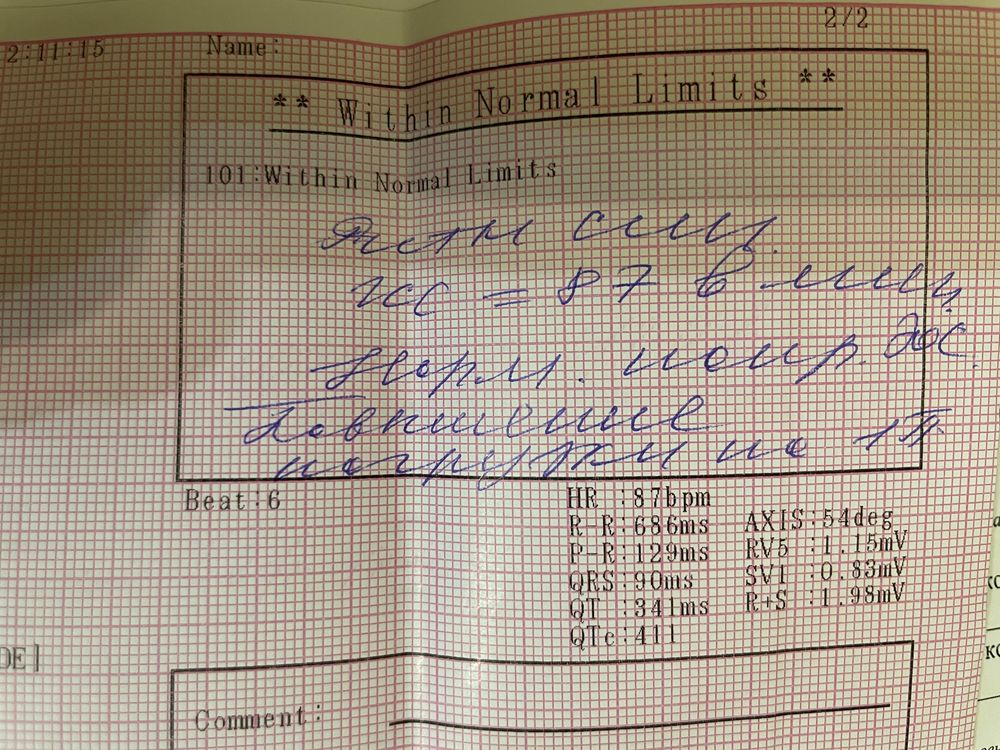 2/2
2:11:15 Name:
** Within Normal Limits **
101:Within Normal Limits
Ритм син.
ЧСС = 87 в мин,
Норм. полож. ЭОС.
Повышение
нагрузки на
Beat:6
HR :87bpm
R-R:686ms AXIS:54deg
P-R:129ms RV5 :1.15mV
QRS:90ms SV1 :0.83mV
QT :341ms R+S :1.98mV
QTc:411
DE]
Comment: